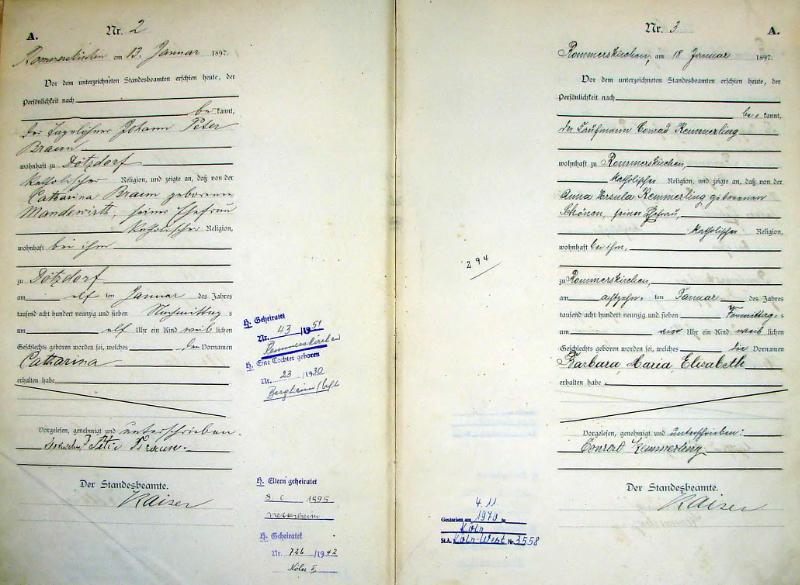 A.
Nr. 2
Rommerskirchen am 13. Januar 1897.
Vor dem unterzeichneten Standesbeamten erschien heute, der
Persönlichkeit nach
be kannt,
der Tagelöhner Johann Peter
Braun
wohnhaft zu Dötzdorf
katholischer Religion, und zeigte an, daß von der
Catharina Braun geborenen
seine Ehefrau
katholischer Religion,
wohnhaft bei ihm
zu Dötzdorf
am elf ten Januar des Jahres
tausend acht hundert neunzig und sieben Nachmittags
um elf Uhr ein Kind weib lichen
Geschlechts geboren worden sei, welches den Vornamen
Catharina
erhalten habe
Vorgelesen, genehmigt und unterschrieben.
Peter Braun.
Der Standesbeamte.
Kaiser
H. Geheiratet
Nr. 43 / 1951
Rommerskirchen
H. Eine Tochter geboren
Nr. 23 / 1930
Bergheim/Erft
H. Eltern geheiratet
1895
H. Geheiratet
Nr. 726 / 1942
Köln
Nr. 3
A.
Rommerskirchen, am 18 Januar 1897.
Vor dem unterzeichneten Standesbeamten erschien heute, der
Persönlichkeit nach
be kannt,
der Kaufmann Conrad Kemmerling
wohnhaft zu Rommerskirchen,
katholischer Religion, und zeigte an, daß von der
Anna Ursula Kemmerling geborenen
Schönen, seiner Ehefrau,
katholischer Religion,
wohnhaft bei ihm,
zu Rommerskirchen,
am achtzehn ten Januar des Jahres
tausend acht hundert neunzig und sieben Vormittags
um vier Uhr ein Kind weib lichen
Geschlechts geboren worden sei, welches die Vornamen
Barbara, Maria, Elisabeth
erhalten habe
Vorgelesen, genehmigt und unterschrieben:
Conrad Kemmerling
Der Standesbeamte.
Kaiser
294
4.11
Gestorben am 1970 in
Köln
St.A. Köln-West Nr. 3558